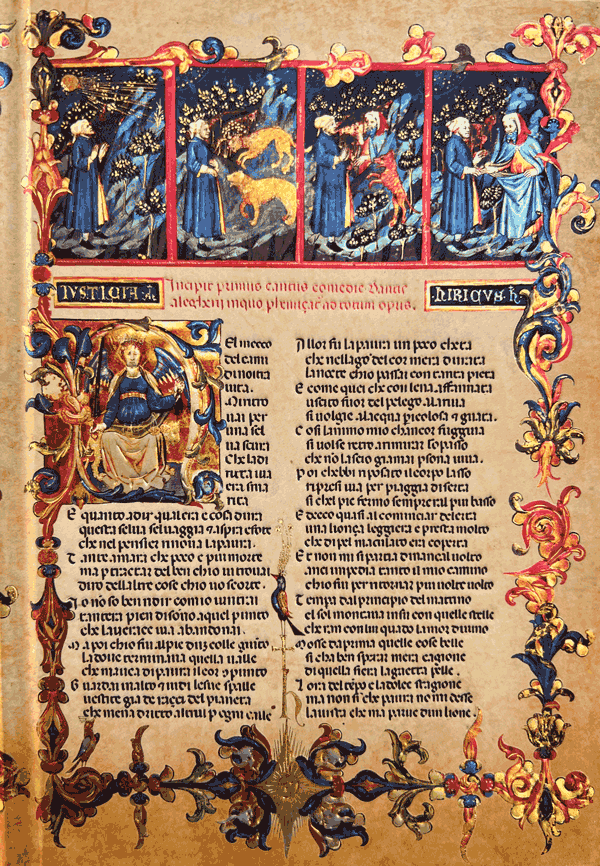 IVSTICIA
Incipit primus cantus comedie Dantis
alegherij inquo ad totum opus.
N
El mecco
del cami
di nostra
uita.
Mi ritro
uai per
una sel
ua scura
Che la di
ritta uia
era sma
rita
E quanto adir qual era e cosa dura
questa selua seluaggia e aspra e forte
che nel pensier rinoua la paura.
Tanto amara che poco e piu morte
ma per tractar del ben chio ui trouai
diro dellaltre cose chio uo scorte.
Io no so ben ridir comio untrai
tantera pien disono aquel punto
che la uerace uia abandonai.
Ma poi chio fui al pie dun colle giunto
la doue terminaua quella ualle
che mauea di paura il cor punto
Guardai in alto e uidi le sue spalle
uestite gia de raggi del pianeta
che mena dritto altrui p ogni calle
Allor fu la paura un poco cheta
che nel lago del cor mera durata
la nocte chio passai con tanta pieta
E come quei che con lena affannata
uscito fuor del pelego ala riua
si uolgie alacqua picolosa e guata.
Cosi lanimo mio chancor fuggiua
si uolse retro a rimirar lo passo
che no lascio giamai psona uiua.
Poi chebbi riposato il corpo lasso
ripresi uia per piaggia diserta
si chel pie fermo sempre ral piu basso
Et ecco quasi al cominciar de lerta
una lionça leggiera e presta molto
che di pel maculato era coperta
Et non mi si partia dinançi al uolto
anci impedia tanto il mio camino
chio fui per ritornar piu uolte uolto
Tempa dal principio del mattino
el sol montaua insu con quelle stelle
che ran con lui quado lamor diuino
Mosse da prima quelle cose belle
si cha ben sperar mera cagione
di quella fiera la gaetta pelle.
Lora del tepo e la dolce stagione
ma non si che paura no mi desse
la uista che ma parue dun lione.